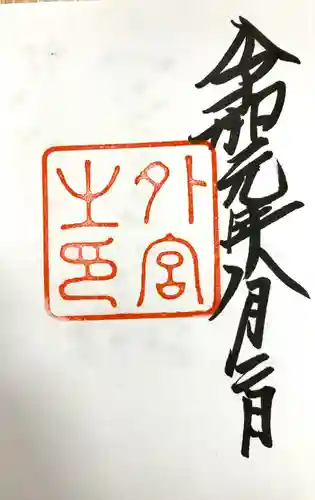 令和元年八月二日
外宮
之印